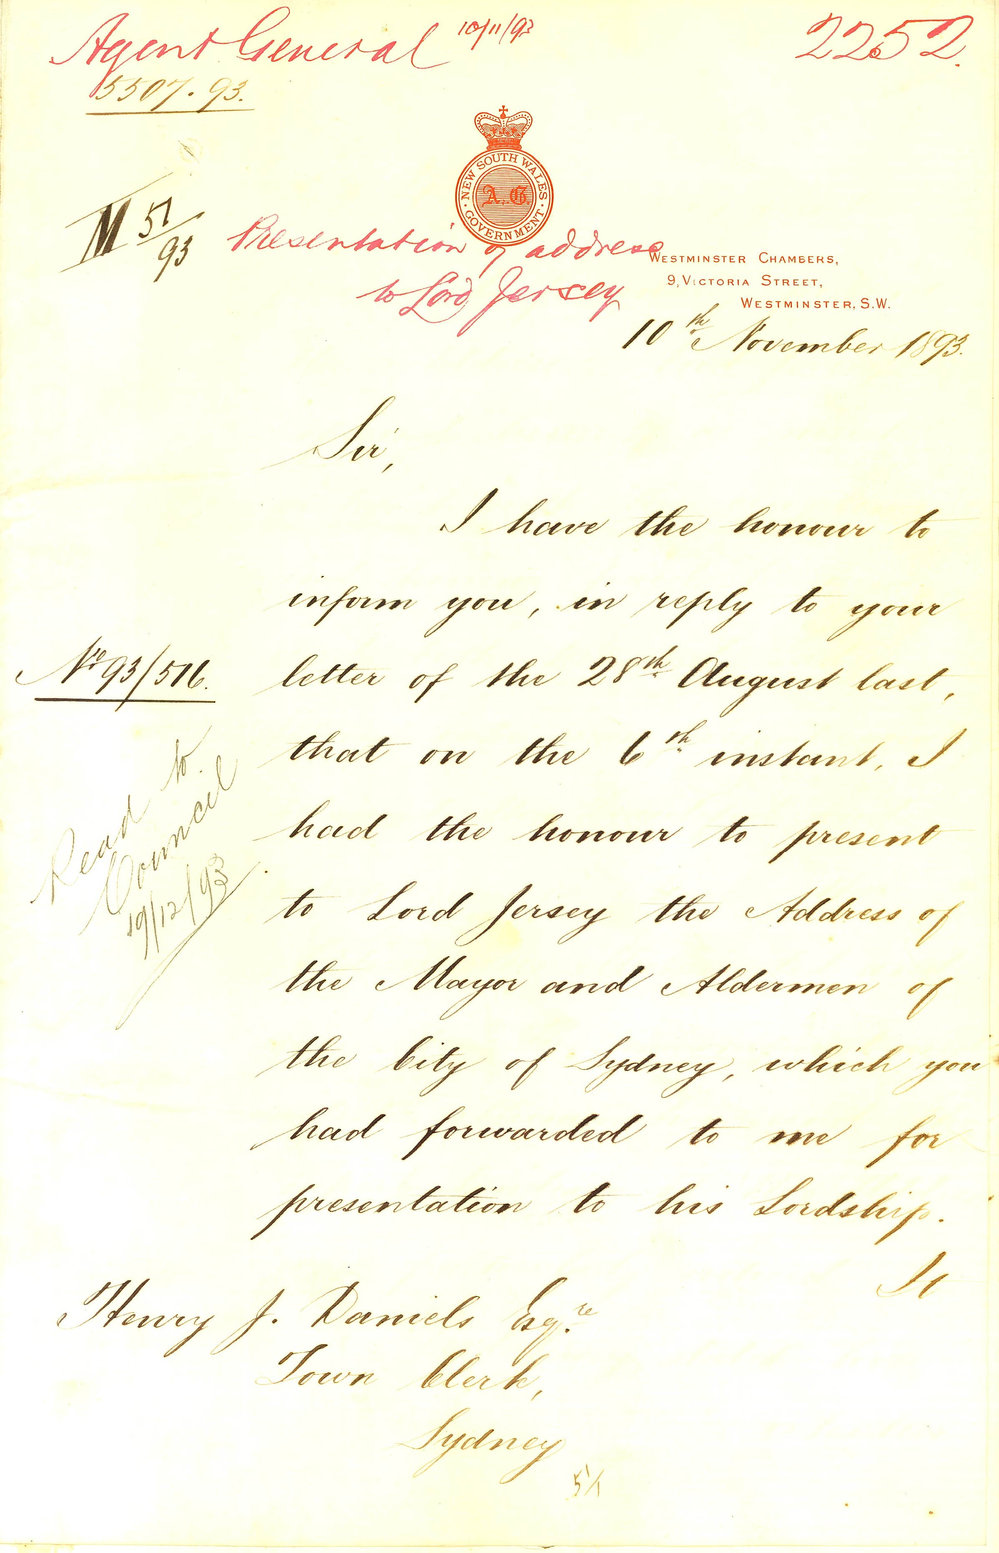 Agent General 10/11/93
2252.
5507.93.
NEW SOUTH WALES
A.G.
GOVERNMENT
M 51/93
Presentation of address
to Lord Jersey
WESTMINSTER CHAMBERS,
9, VICTORIA STREET,
WESTMINSTER, S.W.
10th November 1893.
Sir,
I have the honour to
inform you, in reply to your
No 93/516.
letter of the 28th August last,
that on the 6th instant, I
had the honour to present
to Lord Jersey the Address of
the Mayor and Aldermen of
the City of Sydney, which you
had forwarded to me for
presentation to his Lordship.
Read to
Council
19/12/93
Henry J. Daniels Esqre
Town Clerk,
Sydney